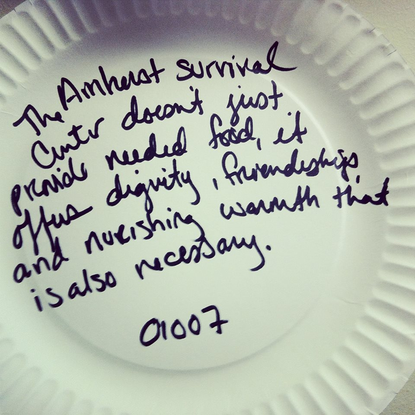 The Amherst survival
Center doesn't just
provide needed food, it
offers dignity, friendships,
and nourishing warmth that
is also necessary.
01007